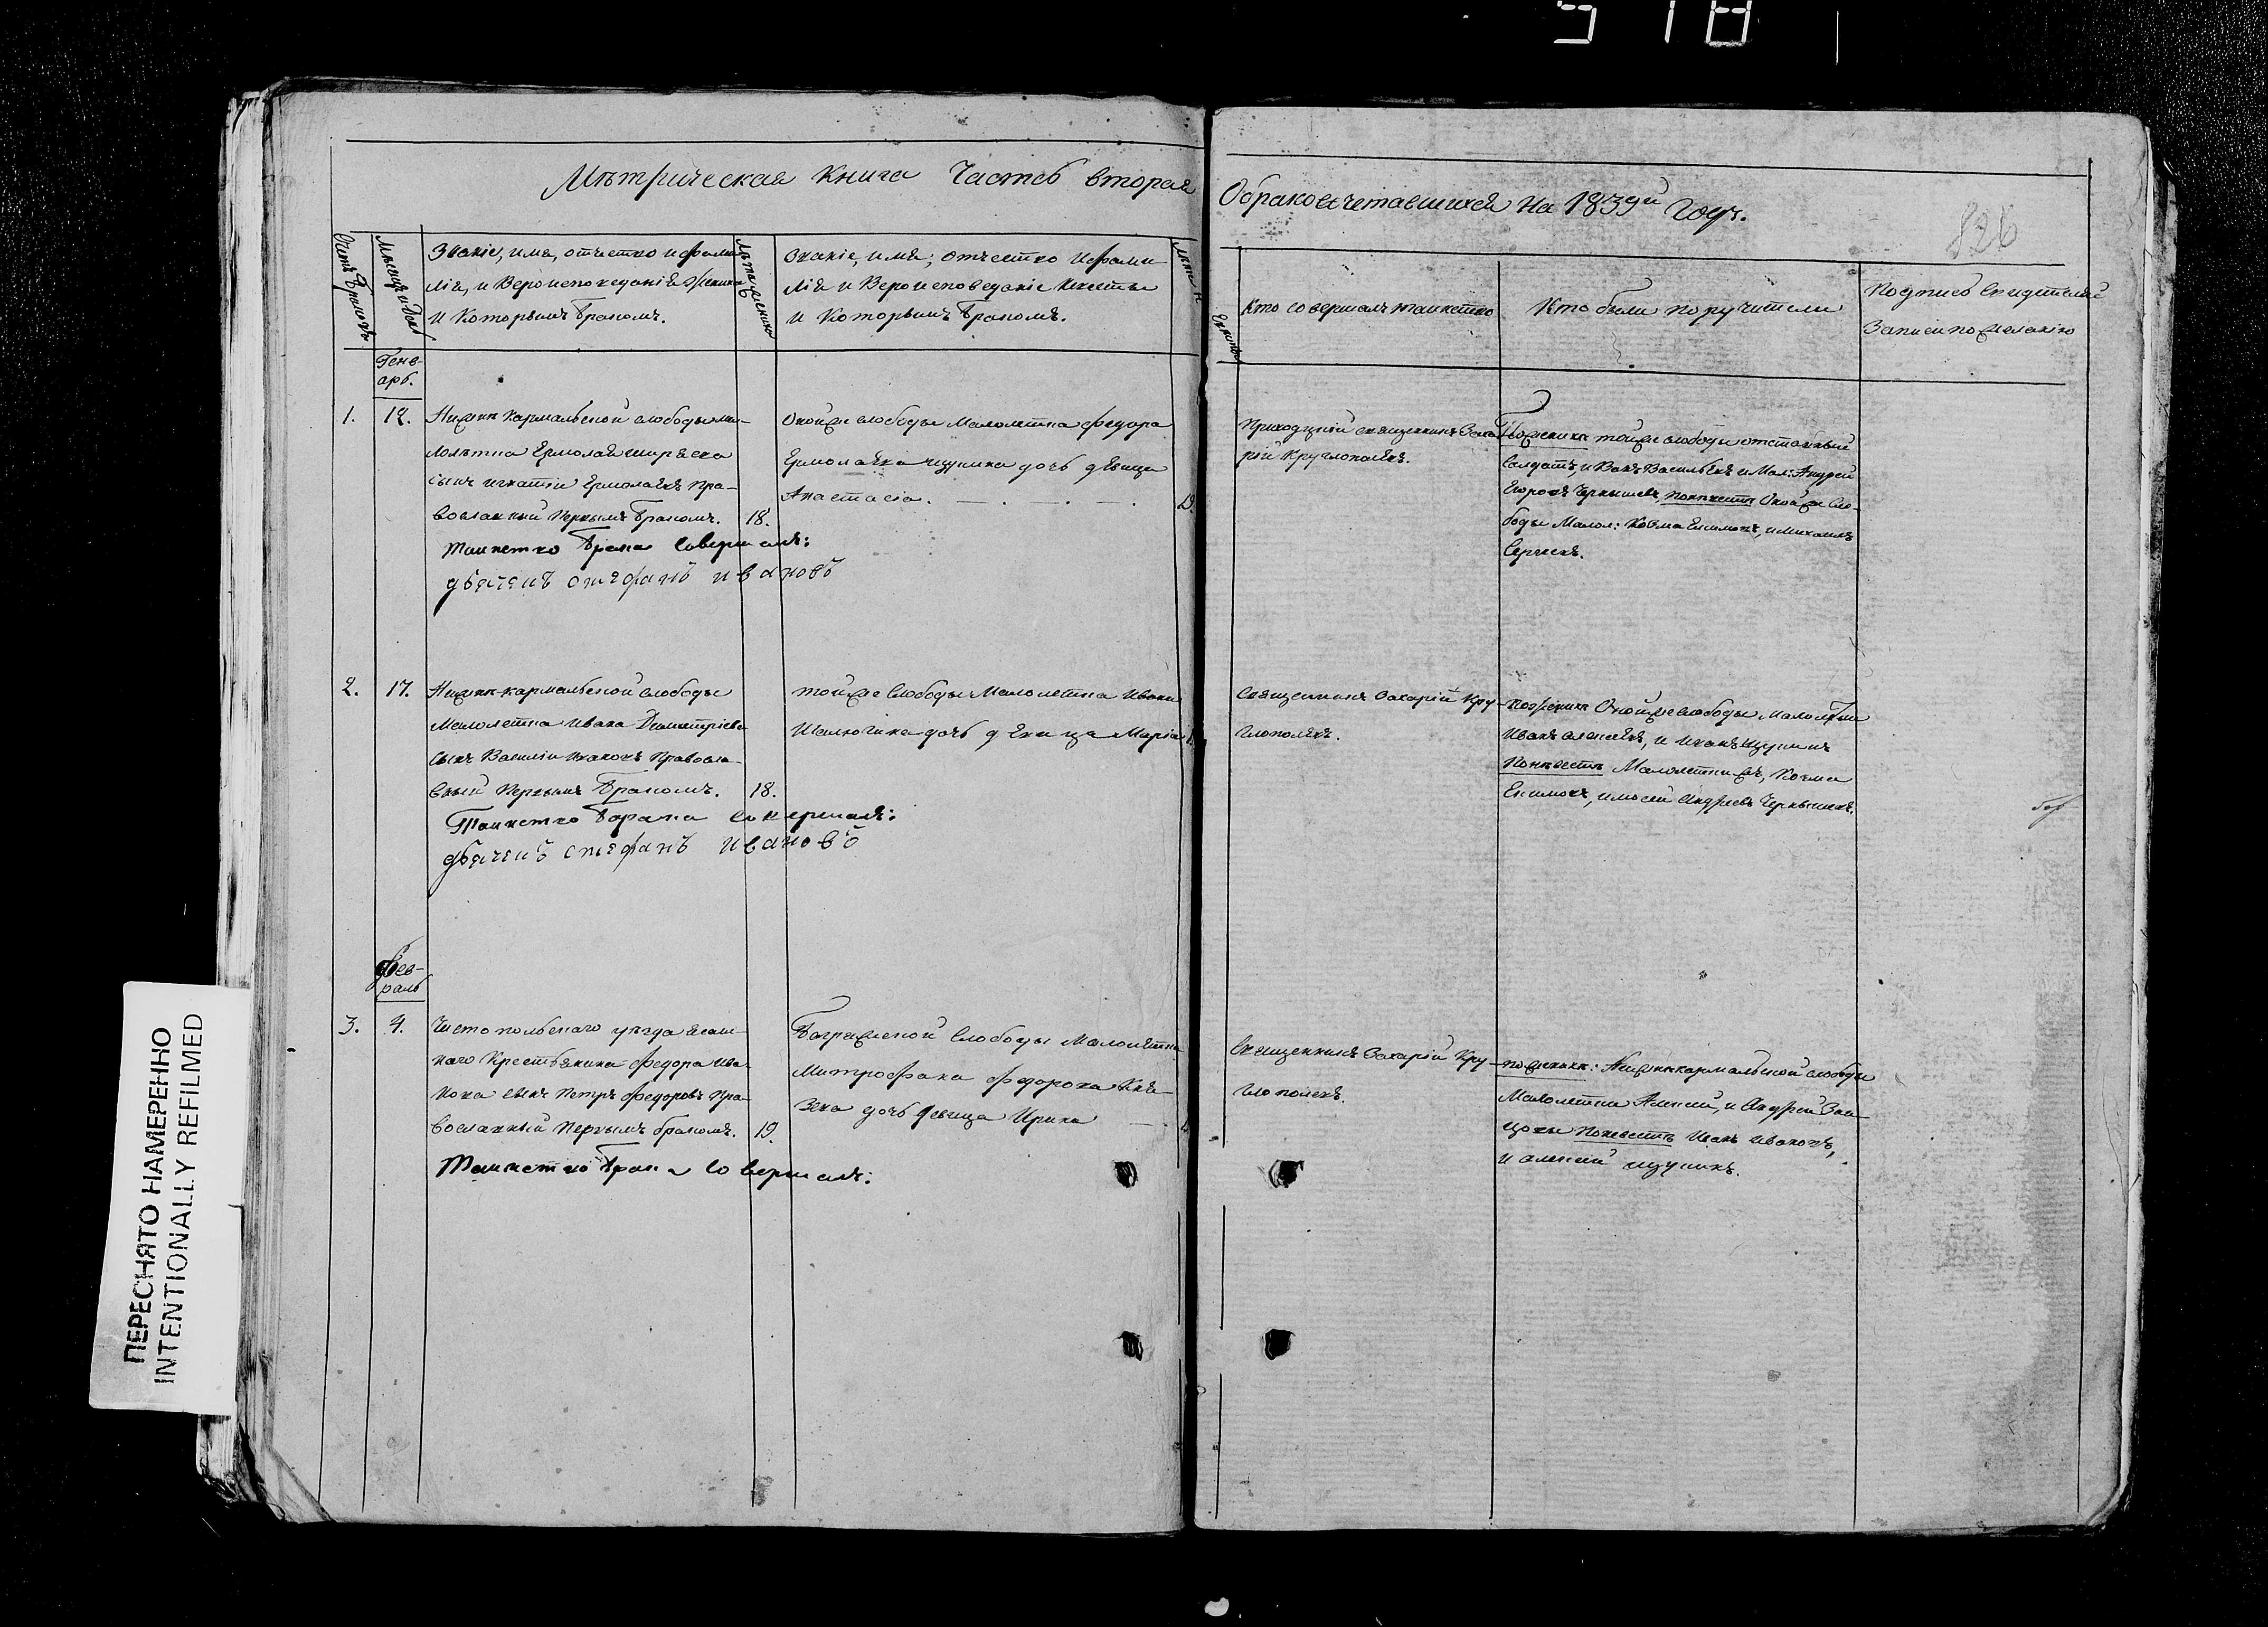 518
Метрическая Книга Часть вторая
Обракосочетавшихся на 1839й Годъ.
826
Счетъ браковъ
Месяцъ и день
Званіе, имя, отчетво и фами-
лія, и Вероисповеданіе Жениха
и Которымъ Бракомъ.
Лета жениха
Званіе, имя, отчество и фами-
лія и Вероисповеданіе Невесты
и Которымъ Бракомъ.
Лета не-
весты
Кто совершалъ таинство
Кто были поручители
Подпись свидетелей
Записи по желанію
Генв-
арь.
1.
12.
Нижнекармальской слободы ма-
лолетка Ермолая
сынъ Игнатій Ермолаевъ пра-
вославный первымъ бракомъ.
18.
Таинство брака совершалъ:
дьячекъ стефанъ ивановъ
Оной же слободы Малолетка Федора
Ермолаева дочь девица
Анастасія.
Приходскій священникъ Заха-
рій Круглополевъ.
По женихе той же слободы отставный
Салдатъ Иванъ Васильевъ и Мал: Андрей
Егоровъ Чернышевъ, по невесте Оной же Сло-
боды Малол: Козма Екимовъ, и Михаилъ
Сергеевъ.
2.
17.
Нижнекармальской слободы
Малолетка Ивана Димитріева
сынъ Василій Ивановъ Правосла-
вный первымъ Бракомъ.
18.
Таинство Брака совершалъ:
дьячекъ стефанъ ивановъ
той же Слободы Малолетка Ивана
дочь девица Марія
Священникъ Захарій Кру-
глополевъ.
По женихе Оной же слободы Малолетки
Иванъ Алексеевъ, и Иванъ
По невесте Малолетки Козма
Екимовъ, и Андреевъ Чернышевъ.
Фев-
раль
3.
4.
Чистопольскаго уезда ясаш-
наго Крестьянина Федора Ива-
нова сынъ Петръ Федоровъ Пра-
вославный первымъ бракомъ.
19.
Таинство брака совершалъ:
Слободы Малолетка
Митрофана Федорова Кня-
зева дочь девица Ирина
Священникъ Захарій Кру-
глополевъ.
по женихе: Нижнекармальской слободы
Малолетки Алексей, и Андрей
по невесте Иванъ Ивановъ,
и алексей
ПЕРЕСНЯТО НАМЕРЕННО
INTENTIONALLY REFILMED